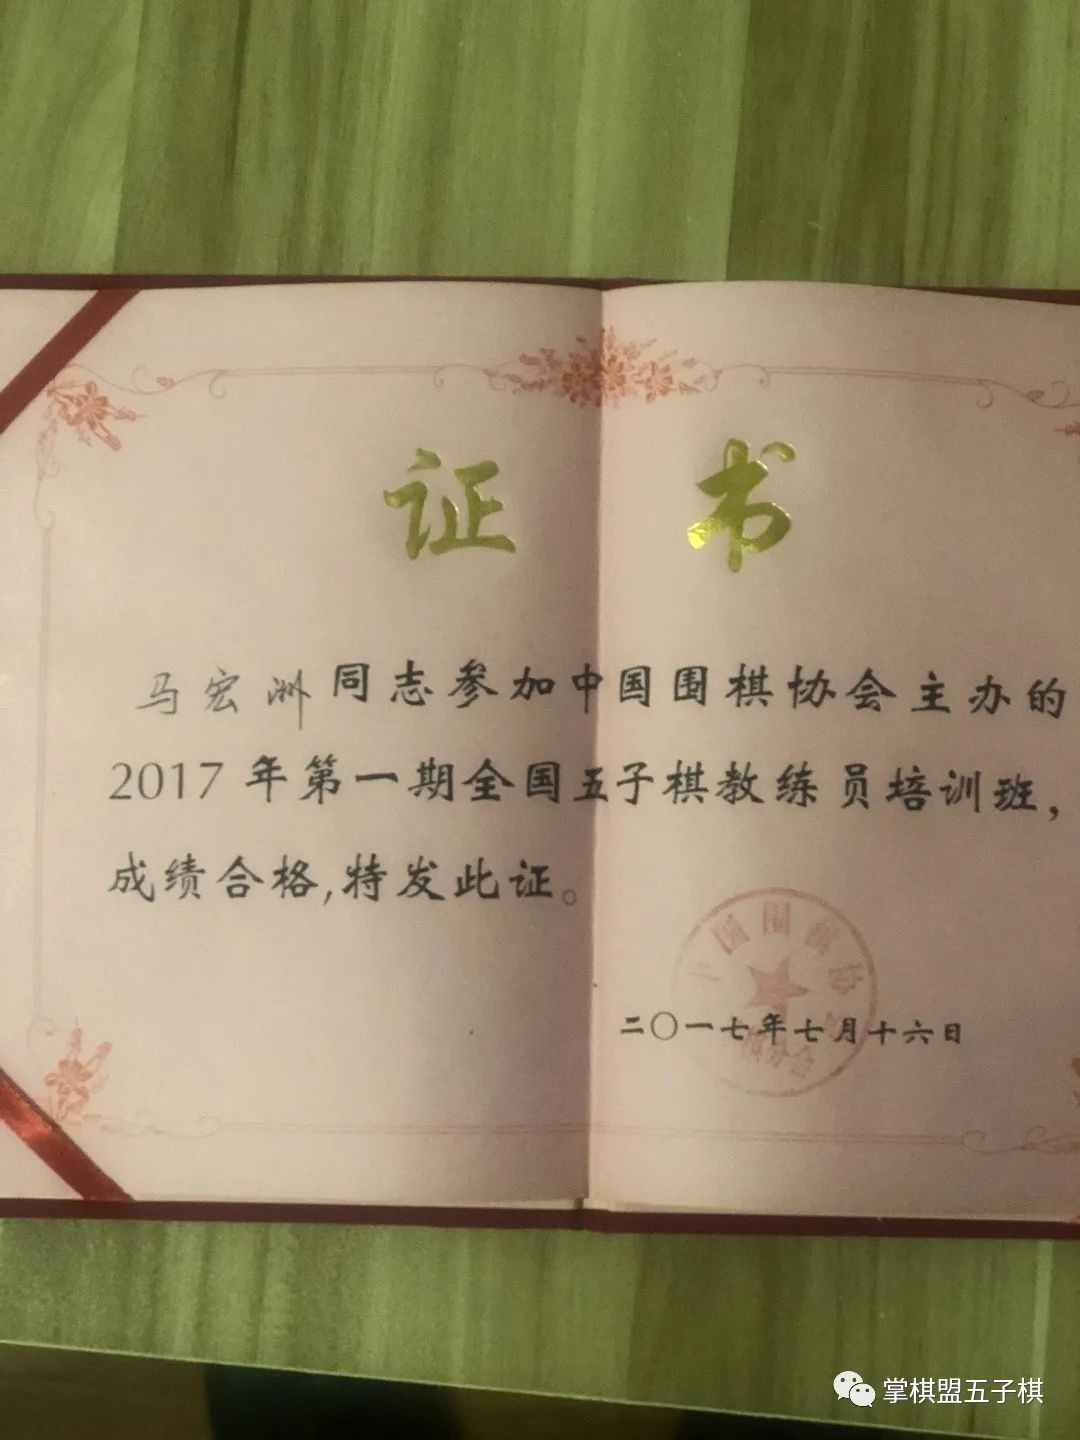 证书
马宏洲同志参加中国围棋协会主办的
2017年第一期全国五子棋教练员培训班，
成绩合格,特发此证。
国围棋协
二〇一七年七月十六日
掌棋盟五子棋